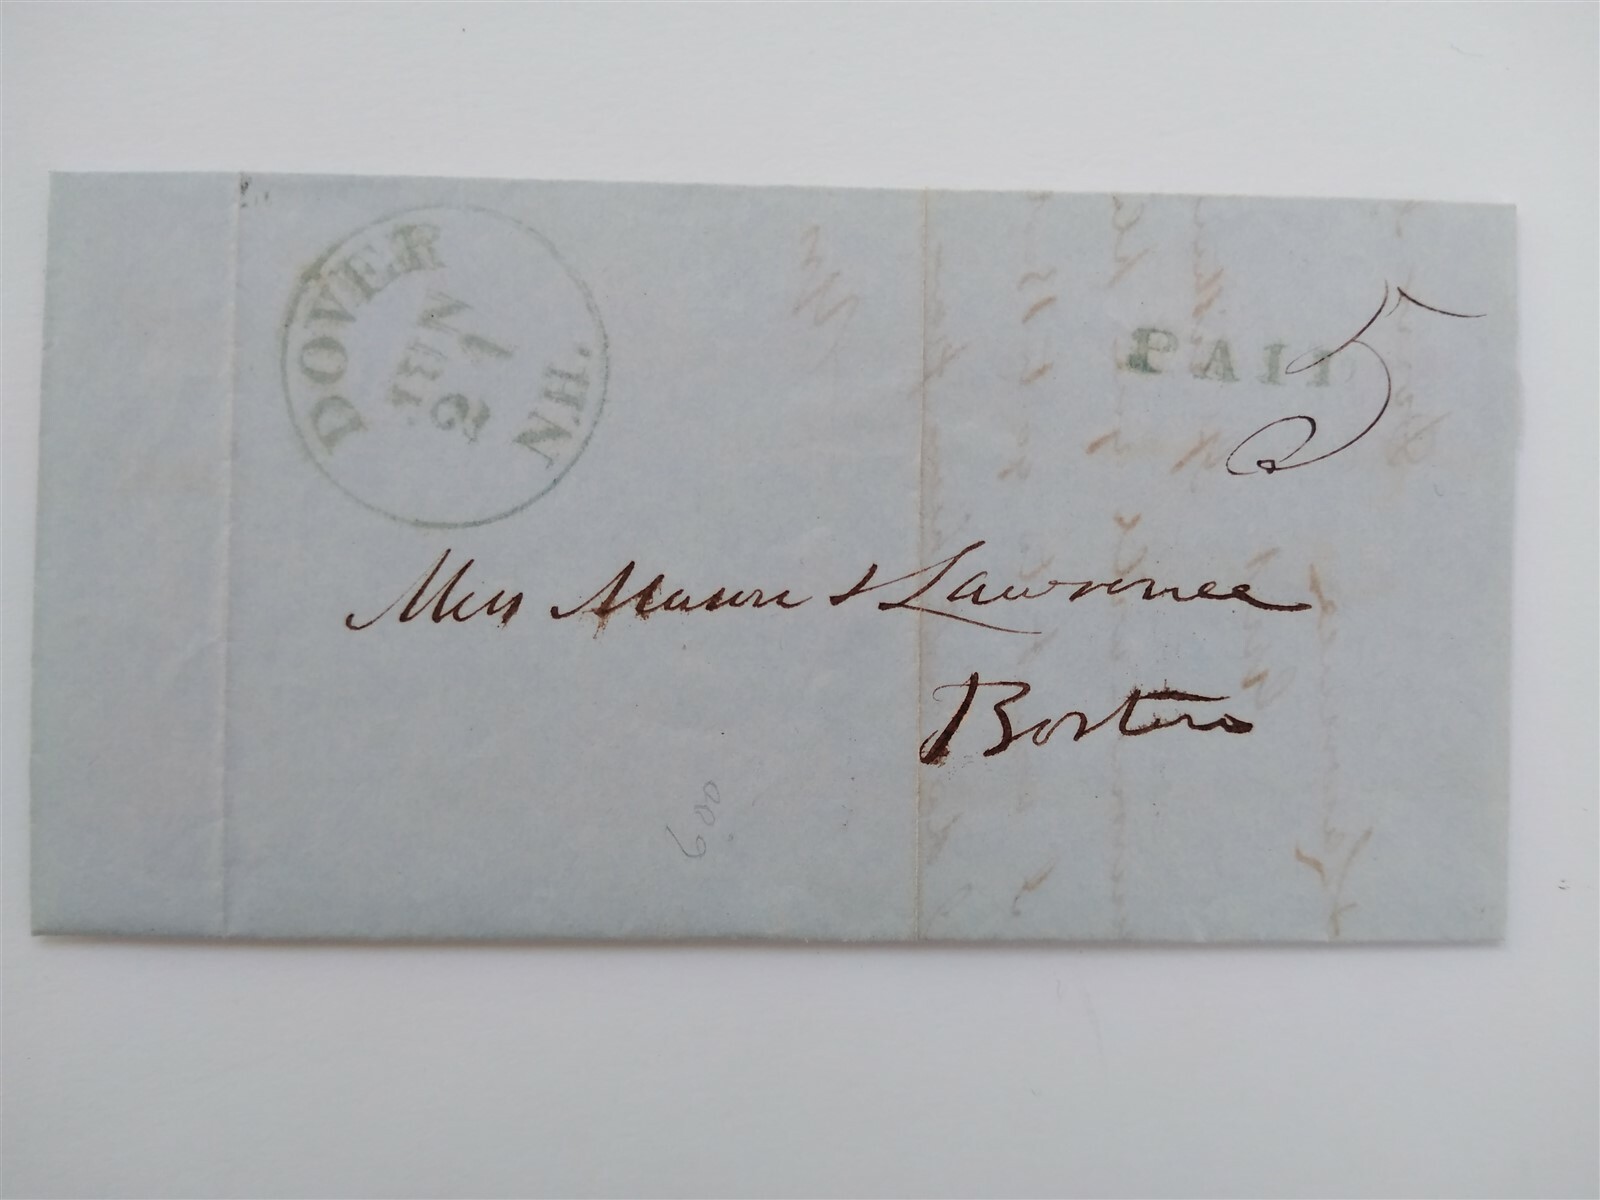 DOVER
JUN
21
N.H.
PAID
5
Mess Mason & Lawrence
Boston
600